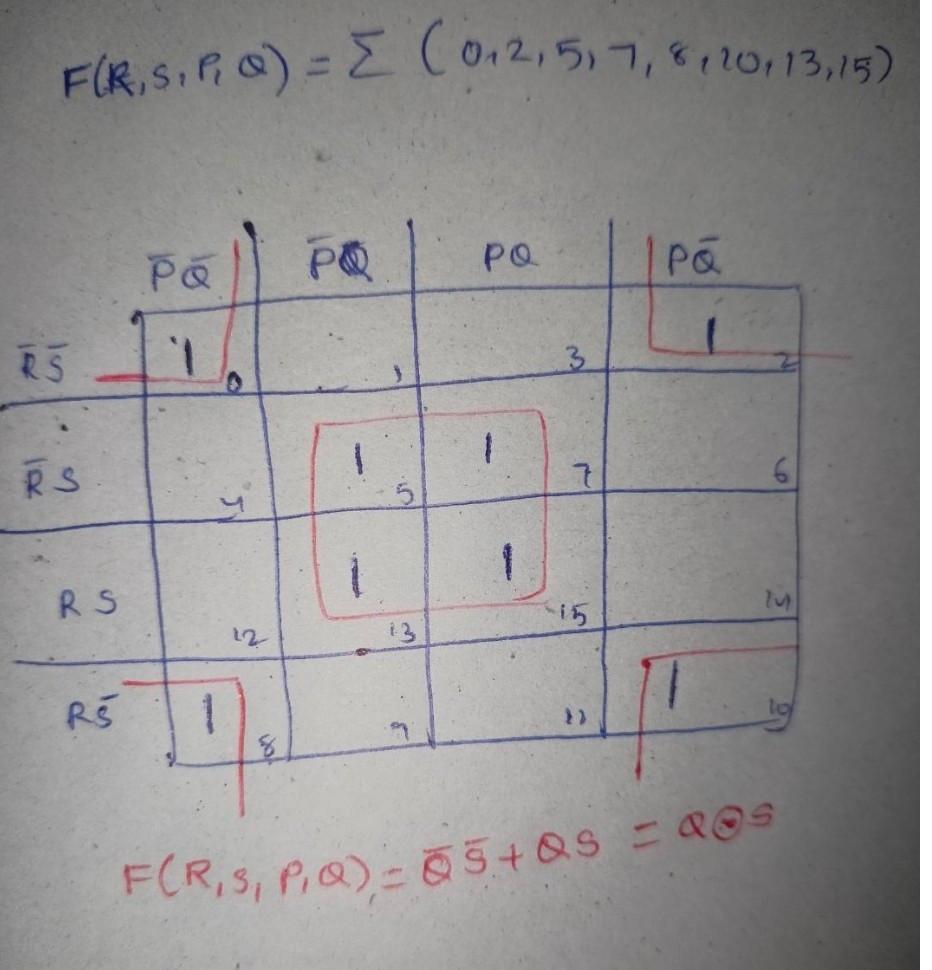 F(R,S,P,Q) = Σ (0,2,5,7,8,10,13,15)
P̄Q̄ P̄Q PQ PQ̄
R̄S̄ 1 0 1 3 1 2
R̄S 4 1 5 1 7 6
RS 12 1 13 1 15 14
RS̄ 1 8 9 11 1 10
F(R,S,P,Q) = Q̄S̄ + QS = Q⊙S